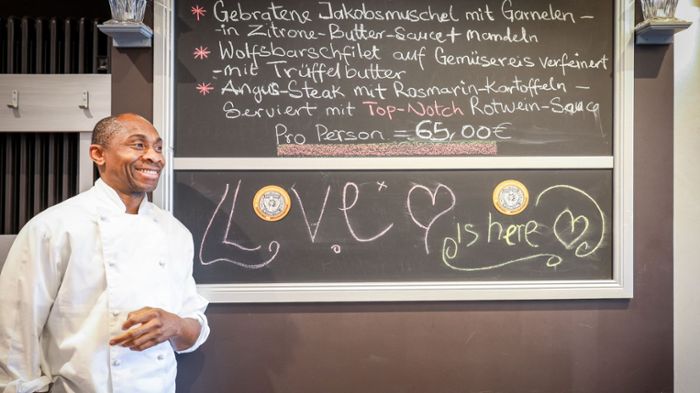 * Gebratene Jakobsmuschel mit Garnelen –
– in Zitrone-Butter-Sauce + mandeln
* Wolfsbarschfilet auf Gemüsereis verfeinert
– mit Trüffelbutter
* Angus-Steak mit Rosmarin-Kartoffeln –
Serviert mit Top-Notch Rotwein-Sauce
Pro Person = 65,00€
Love is here